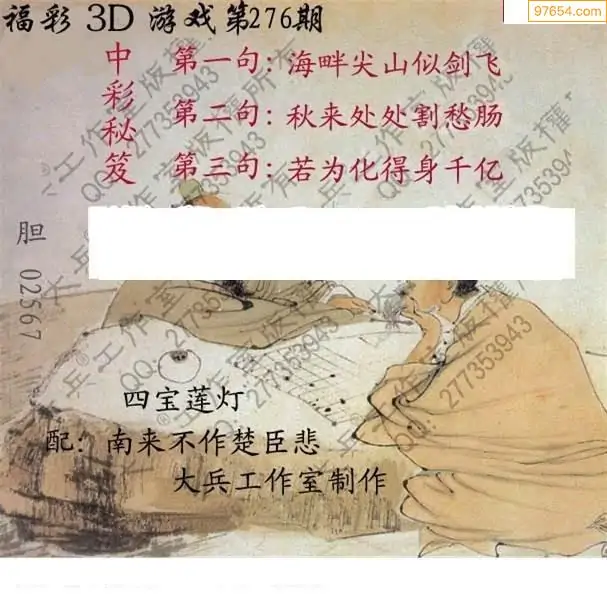 97654.com
福彩 3D 游戏 第276期
中彩秘笈
第一句：海畔尖山似剑飞
第二句：秋来处处割愁肠
第三句：若为化得身千亿
胆 02567
四宝莲灯
配：南来不作楚臣悲
大兵工作室制作
大兵®工作室版權所有
QQ：277353943